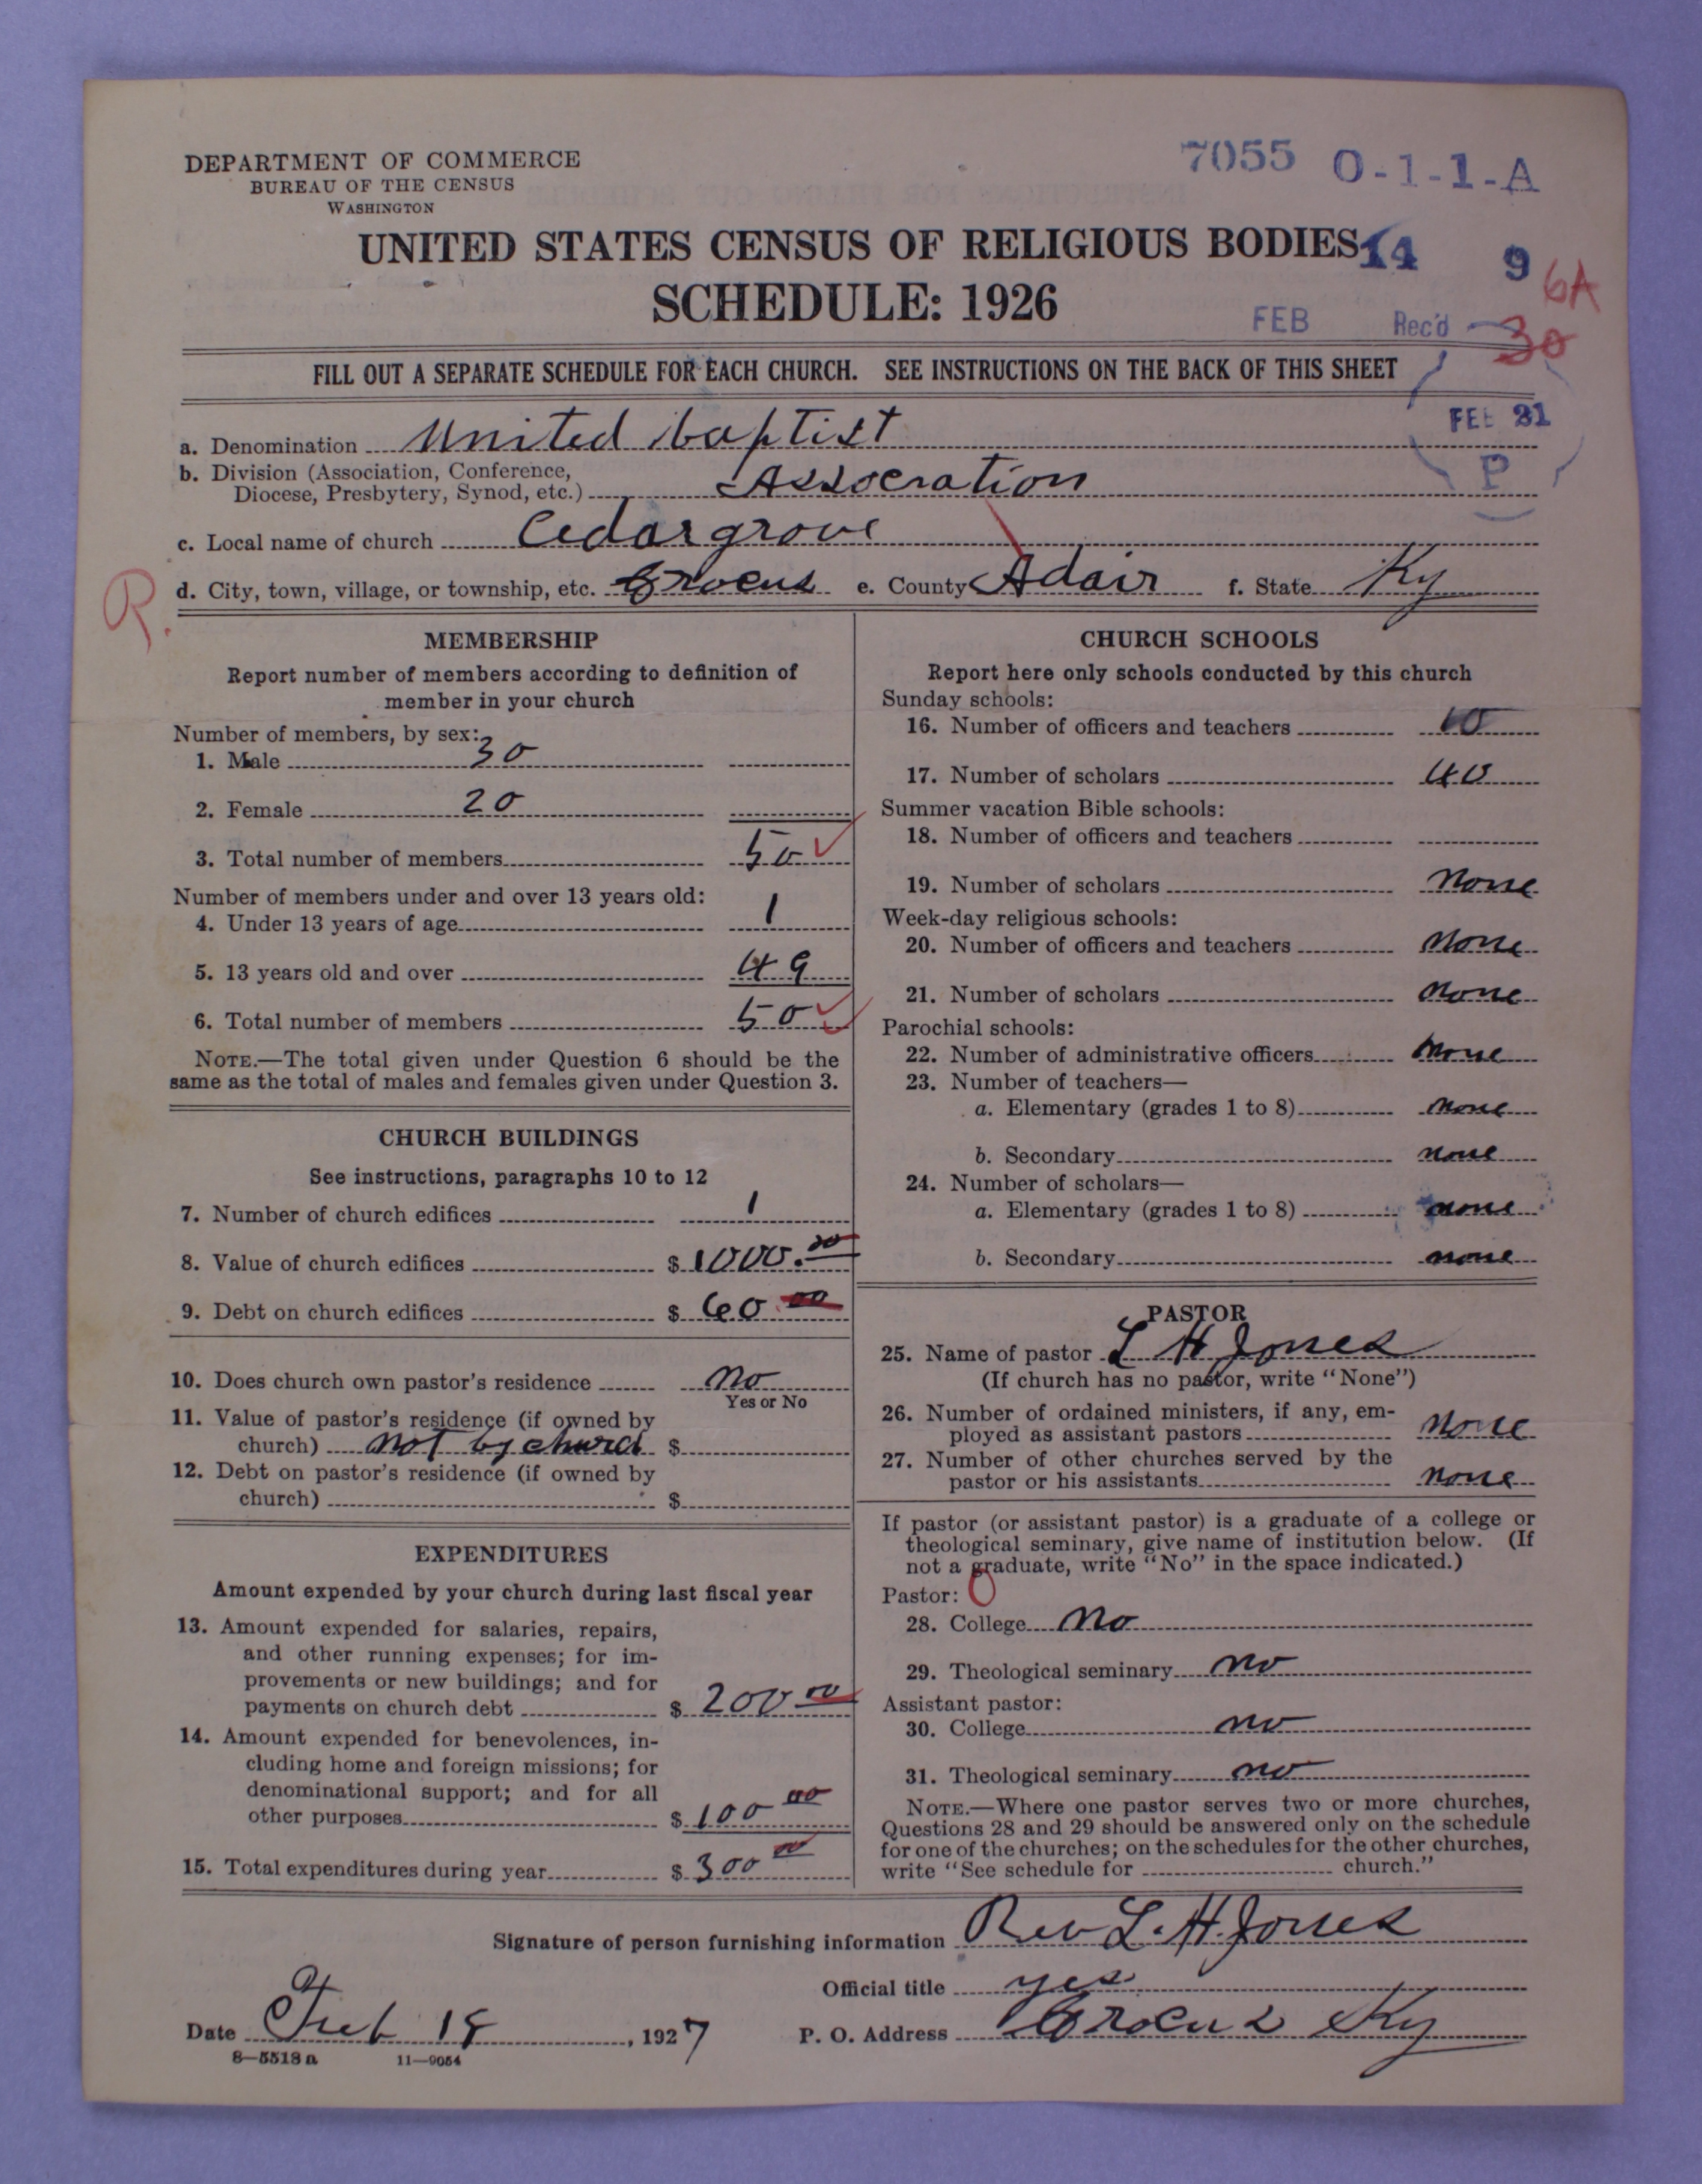 DEPARTMENT OF COMMERCE
BUREAU OF THE CENSUS
WASHINGTON
7055 O-1-1-A
UNITED STATES CENSUS OF RELIGIOUS BODIES
14 9 6A
SCHEDULE: 1926
FEB Rec'd 30
FILL OUT A SEPARATE SCHEDULE FOR EACH CHURCH. SEE INSTRUCTIONS ON THE BACK OF THIS SHEET
FEB 21
P
a. Denomination United baptist
b. Division (Association, Conference,
Diocese, Presbytery, Synod, etc.) Assocration
c. Local name of church Cedargrove
R. d. City, town, village, or township, etc. Crocus e. County Adair f. State Ky
MEMBERSHIP
Report number of members according to definition of
member in your church
Number of members, by sex:
1. Male 30
2. Female 20
3. Total number of members 50
Number of members under and over 13 years old:
4. Under 13 years of age 1
5. 13 years old and over 49
6. Total number of members 50
NOTE.—The total given under Question 6 should be the
same as the total of males and females given under Question 3.
CHURCH BUILDINGS
See instructions, paragraphs 10 to 12
7. Number of church edifices 1
8. Value of church edifices $ 1000.00
9. Debt on church edifices $ 60.00
10. Does church own pastor's residence no
Yes or No
11. Value of pastor's residence (if owned by
church) not by church $
12. Debt on pastor's residence (if owned by
church) $
EXPENDITURES
Amount expended by your church during last fiscal year
13. Amount expended for salaries, repairs,
and other running expenses; for im-
provements or new buildings; and for
payments on church debt $ 200 00
14. Amount expended for benevolences, in-
cluding home and foreign missions; for
denominational support; and for all
other purposes $ 100 00
15. Total expenditures during year $ 300 00
CHURCH SCHOOLS
Report here only schools conducted by this church
Sunday schools:
16. Number of officers and teachers
17. Number of scholars 40
Summer vacation Bible schools:
18. Number of officers and teachers
19. Number of scholars none
Week-day religious schools:
20. Number of officers and teachers none
21. Number of scholars none
Parochial schools:
22. Number of administrative officers none
23. Number of teachers—
a. Elementary (grades 1 to 8) none
b. Secondary none
24. Number of scholars—
a. Elementary (grades 1 to 8) none
b. Secondary none
PASTOR
25. Name of pastor L H Jones
(If church has no pastor, write "None")
26. Number of ordained ministers, if any, em-
ployed as assistant pastors none
27. Number of other churches served by the
pastor or his assistants none
If pastor (or assistant pastor) is a graduate of a college or
theological seminary, give name of institution below. (If
not a graduate, write "No" in the space indicated.)
Pastor: 0
28. College no
29. Theological seminary no
Assistant pastor:
30. College no
31. Theological seminary no
NOTE.—Where one pastor serves two or more churches,
Questions 28 and 29 should be answered only on the schedule
for one of the churches; on the schedules for the other churches,
write "See schedule for church."
Signature of person furnishing information Rev L. H. Jones
Official title yes
Date Feb , 1927 P. O. Address Crocus Ky
8—5518 a 11—9054